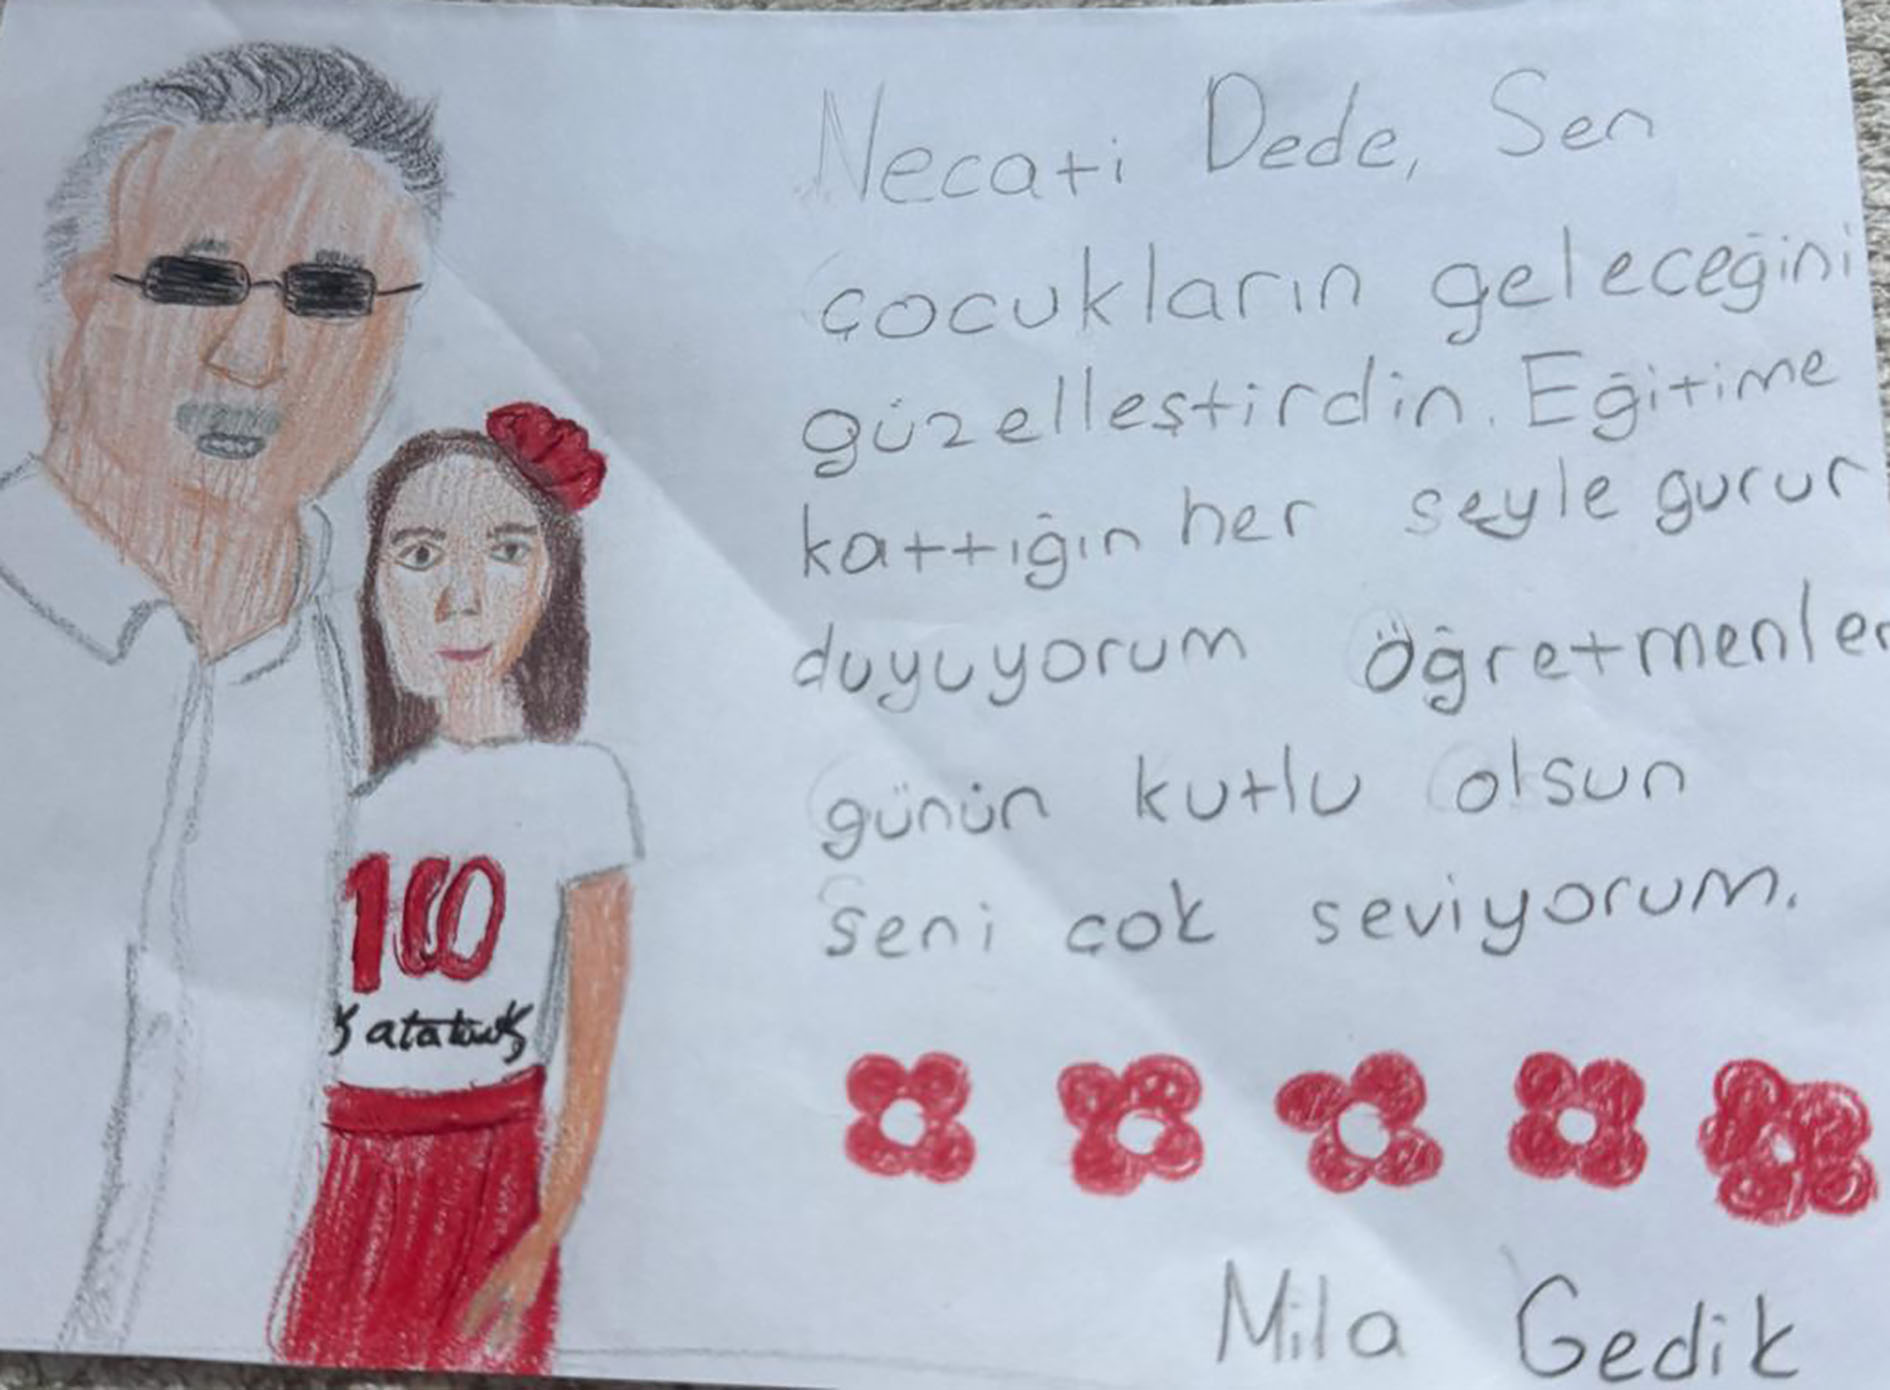 Necati Dede, Sen
çocukların geleceğini
güzelleştirdin. Eğitime
kattığın her seyle gurur
duyuyorum Öğretmenler
günün kutlu olsun
seni çok seviyorum.
100
K atatürk
Mila Gedik